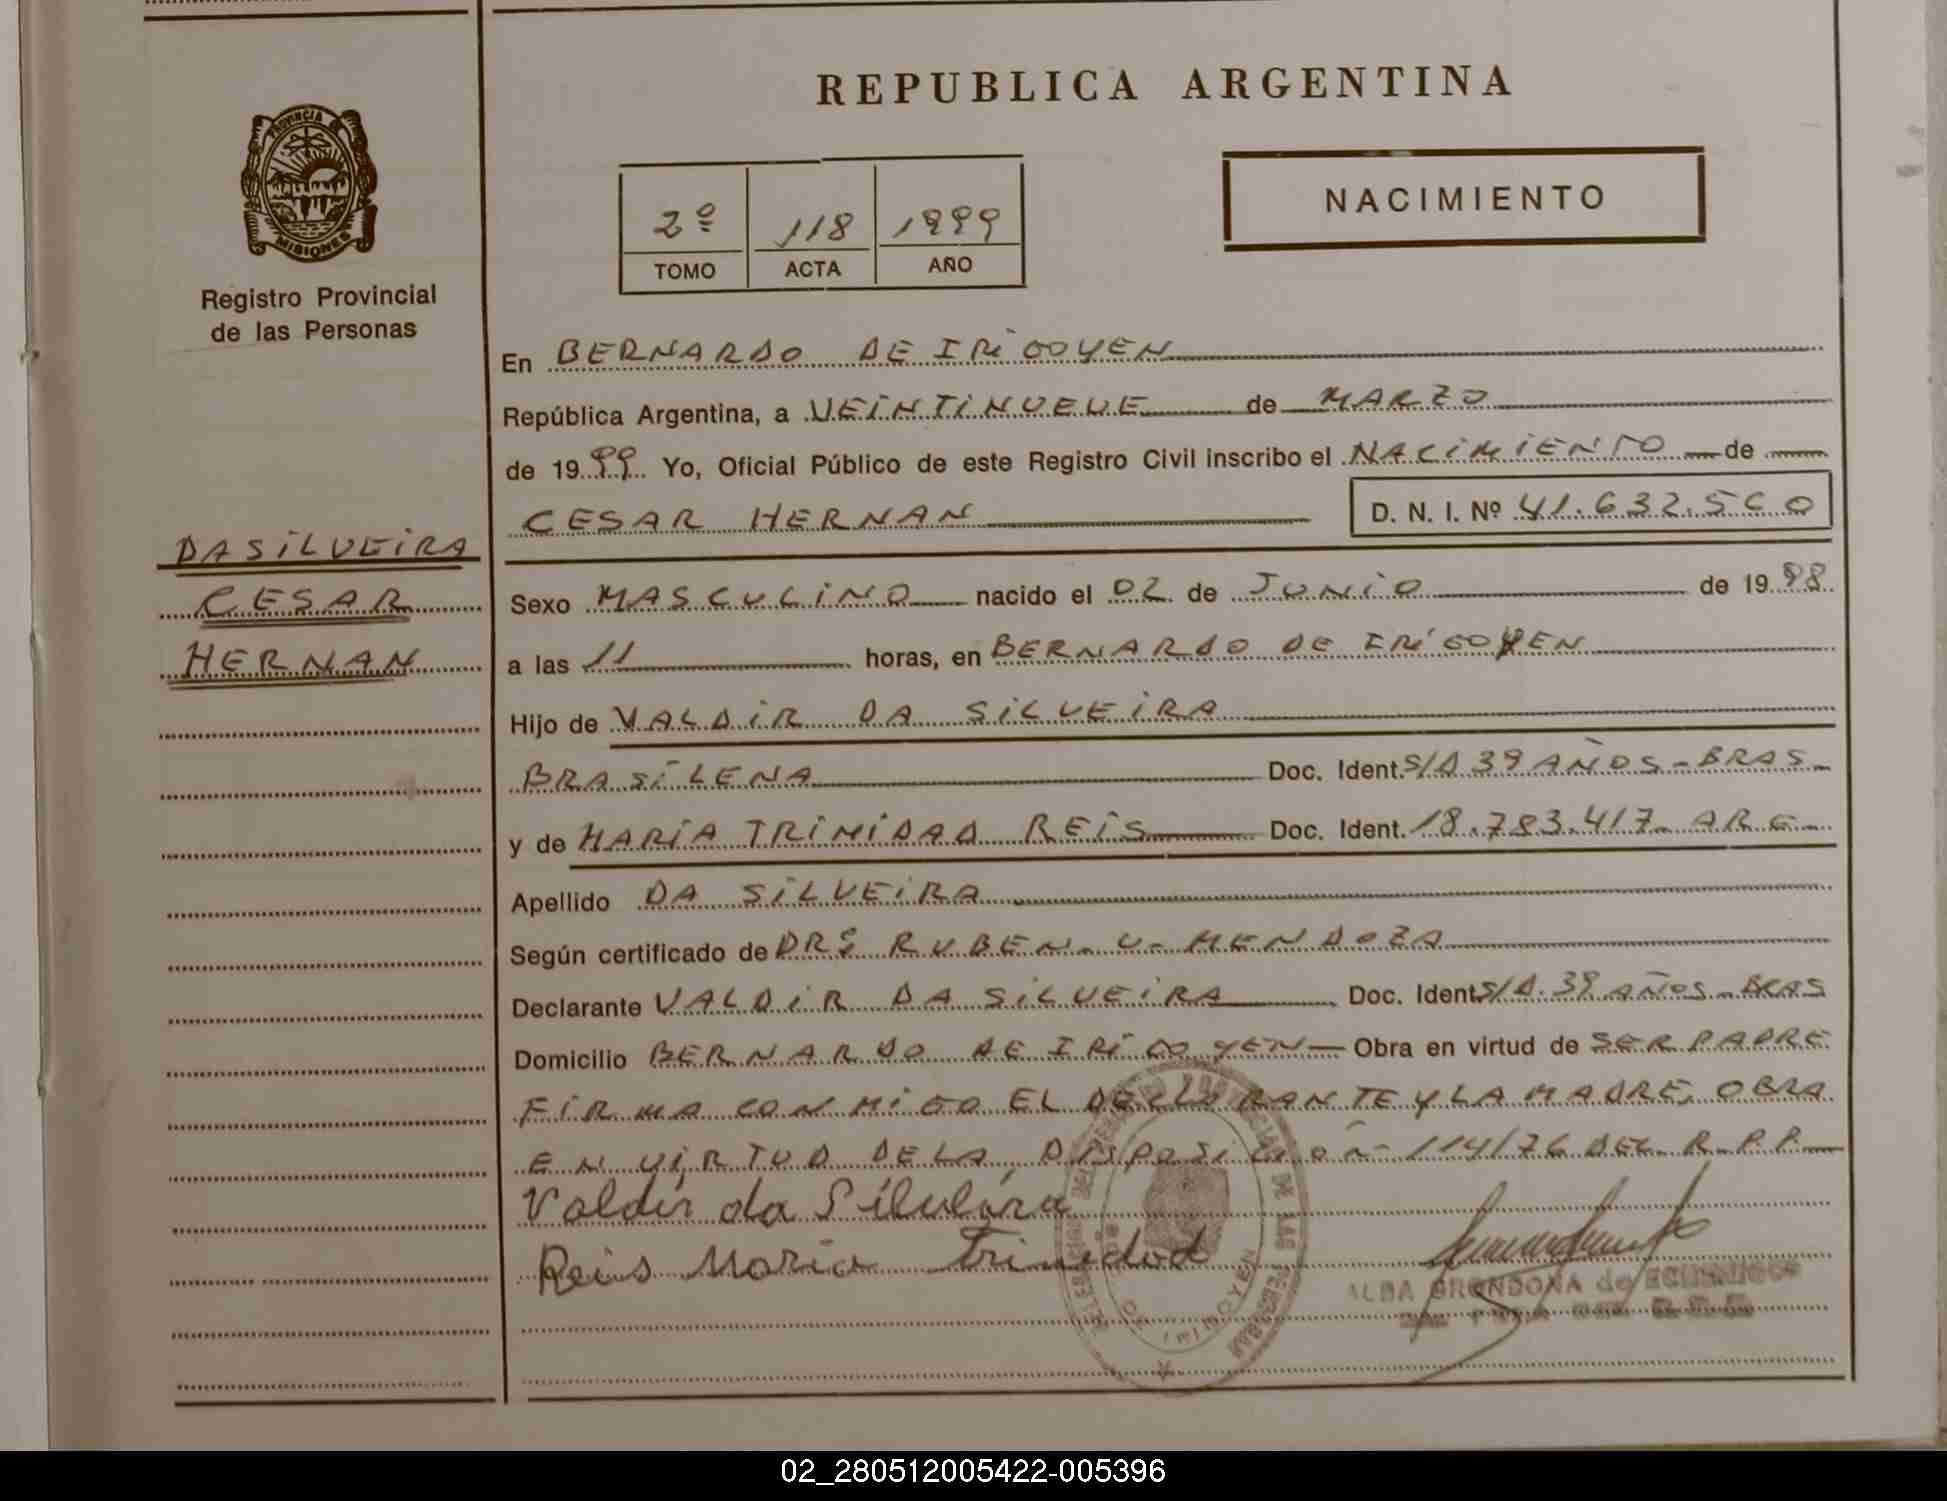 REPUBLICA ARGENTINA
PROVINCIA DE
MISIONES
Registro Provincial
de las Personas
2º 118 1999
TOMO ACTA AÑO
NACIMIENTO
En BERNARDO DE IRIGOYEN
República Argentina, a VEINTINUEVE de MARZO
de 1999 Yo, Oficial Público de este Registro Civil inscribo el NACIMIENTO de
CESAR HERNAN D. N. I. Nº 41.632.560
DA SILVEIRA
CESAR
HERNAN
Sexo MASCULINO nacido el 02 de JUNIO de 1998
a las 11 horas, en BERNARDO DE IRIGOYEN
Hijo de VALDIR DA SILVEIRA
BRASILENA Doc. Ident. S/D 39 AÑOS - BRAS -
y de MARIA TRINIDAD REIS Doc. Ident. 18.783.417 - ARG -
Apellido DA SILVEIRA
Según certificado de DRº RUBEN - U - MENDOZA
Declarante VALDIR DA SILVEIRA Doc. Ident S/D. 39 AÑOS - BRAS
Domicilio BERNARDO DE IRIGOYEN - Obra en virtud de SER PADRE
FIRMA CONMIGO EL DECLARANTE Y LA MADRE, OBRA
EN VIRTUD DE LA DISPOSICION - 114/76 DEL R.P.P.
Valdir da Silveira
Reis Maria Trinidad
ALBA GRONDONA de
DE IRIGOYEN
02_280512005422-005396